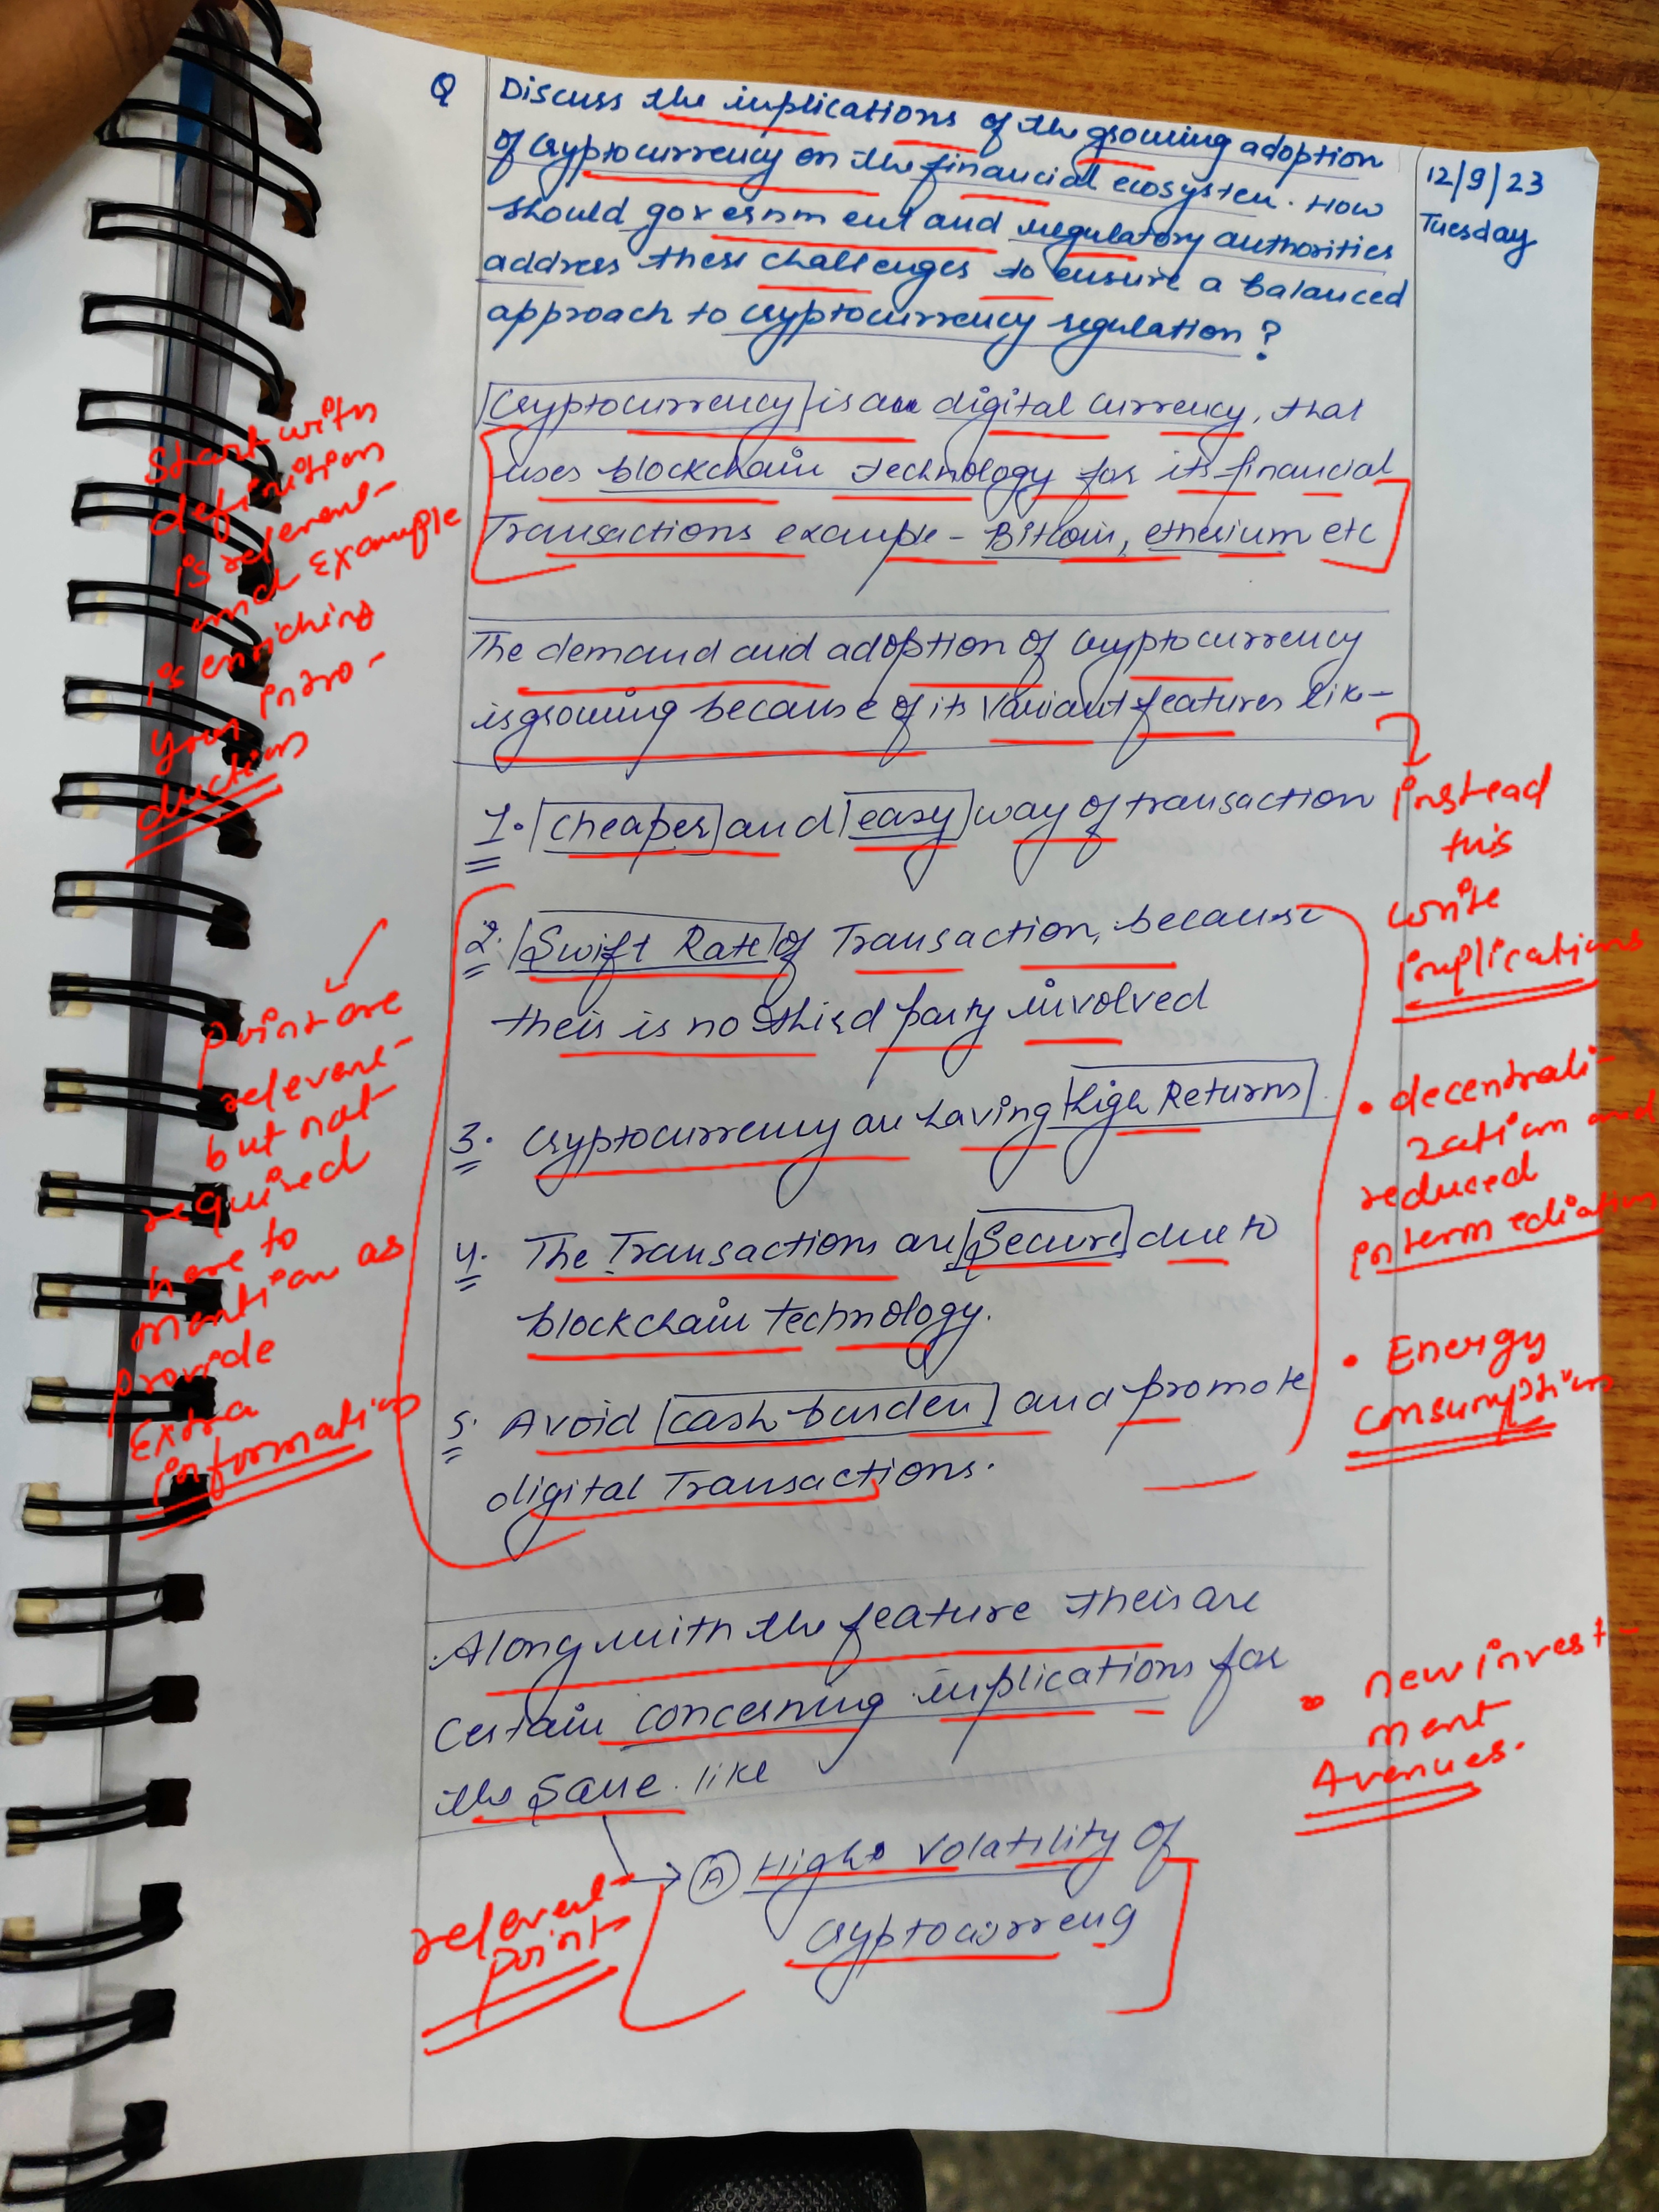 Q Discuss the implications of the growing adoption
of cryptocurrency on the financial ecosystem. How
should government and regulatory authorities
address these challenges to ensure a balanced
approach to cryptocurrency regulation?
12/9/23
Tuesday
Cryptocurrency is an digital currency, that
uses blockchain technology for its financial
Transactions example - Bitcoin, etherium etc
Start with
definition
is relevent
and example
is enriching
your intro-
duction
The demand and adoption of cryptocurrency
is growing because of its variant features like-
1. cheaper and easy way of transaction
2. Swift Rate of Transaction, because
their is no third party involved
3. cryptocurrency are having high Returns.
4. The Transactions are Secure due to
blockchain technology.
5. Avoid cash burden and promote
digital Transactions.
point are
relevent
but not
required
here to
mention as
provide
Extra
information
instead
this
write
implications
• decentrali-
zation and
reduced
intermediation
• Energy
consumption
• new invest-
ment
Avenues.
Along with the feature their are
Certain concerning implications for
the same. like
→ A High volatility of
cryptocurreny
relevent
point